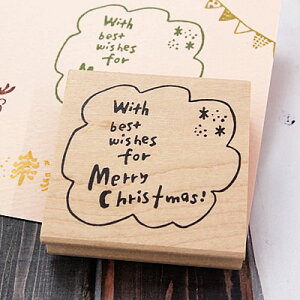 With
best
wishes
for
M
With
best
wishes
for
Merry
Christmas!